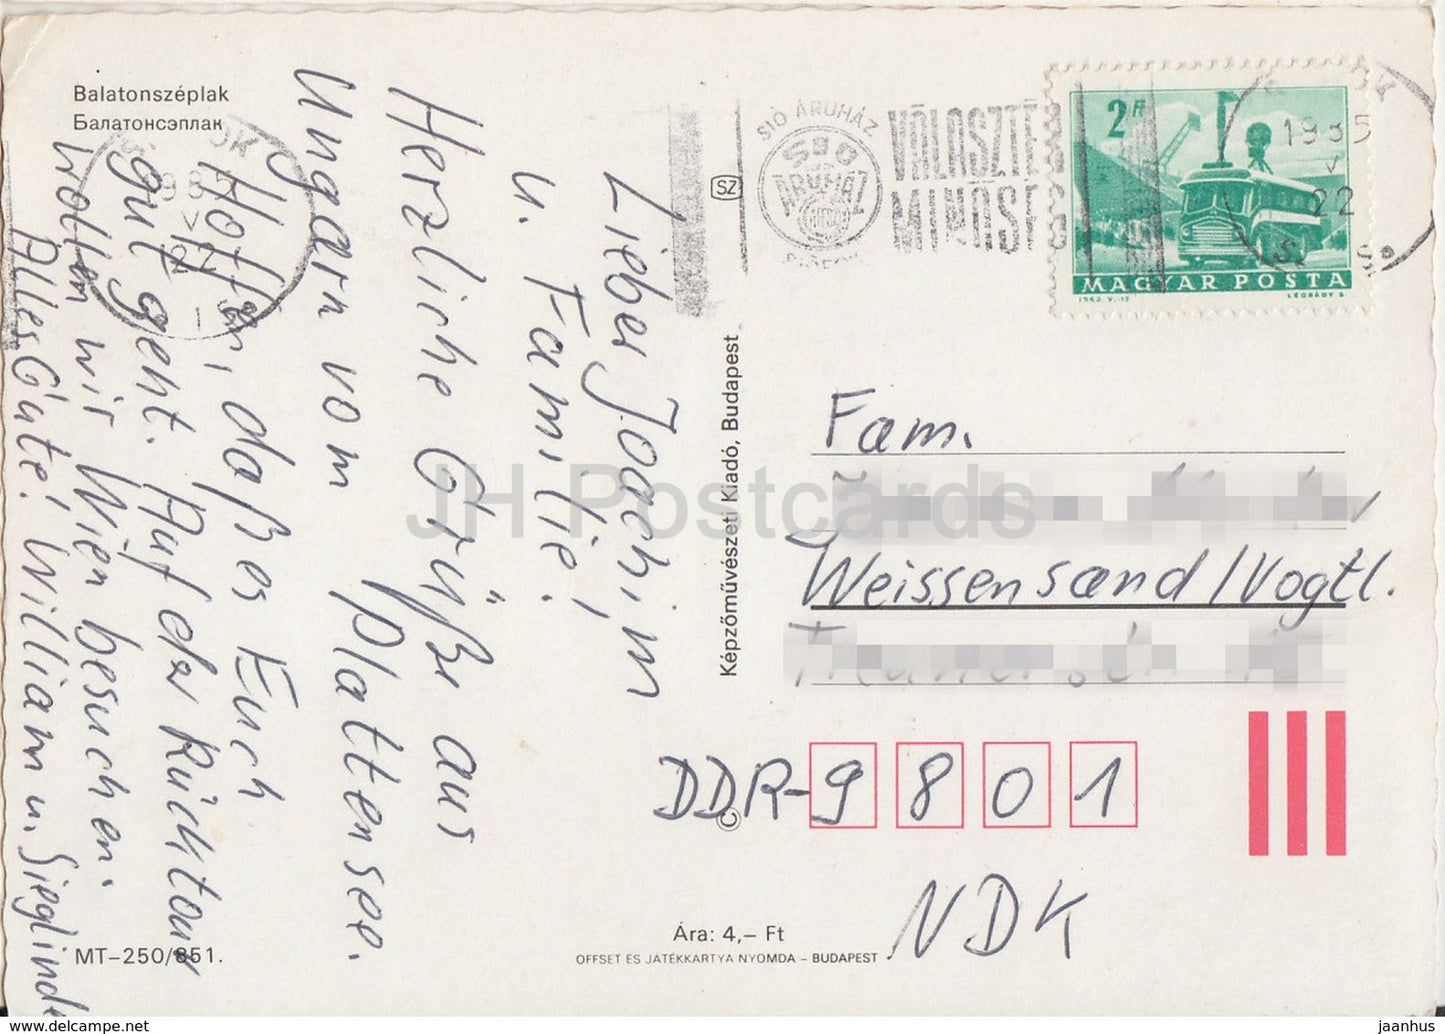 Balatonszéplak
Балатонсэплак
Lieber Joachim
u. Familie!
Herzliche Grüße aus
Ungarn vom Plattensee.
Hoffen, daß es Euch
gut geht. Auf der Rücktour
wollen wir Wien besuchen.
Alles Gute! William u. Sieglinde
MT–250/851.
SZ
Képzőművészeti Kiadó, Budapest
©
Ára: 4,– Ft
OFFSET ÉS JÁTÉKKARTYA NYOMDA – BUDAPEST
SIÓ ÁRUHÁZ
SIÓ
ÁRUHÁZ
SIÓFOK
VÁLASZTÉ
MINŐSÉ
2 Ft
MAGYAR POSTA
1963. V.-12.
LÉGRÁDY S.
1985
V
22
Fam.
Weissensand/Vogtl.
DDR-9801
NDK
JH Postcards
www.delcampe.net
jaanhus